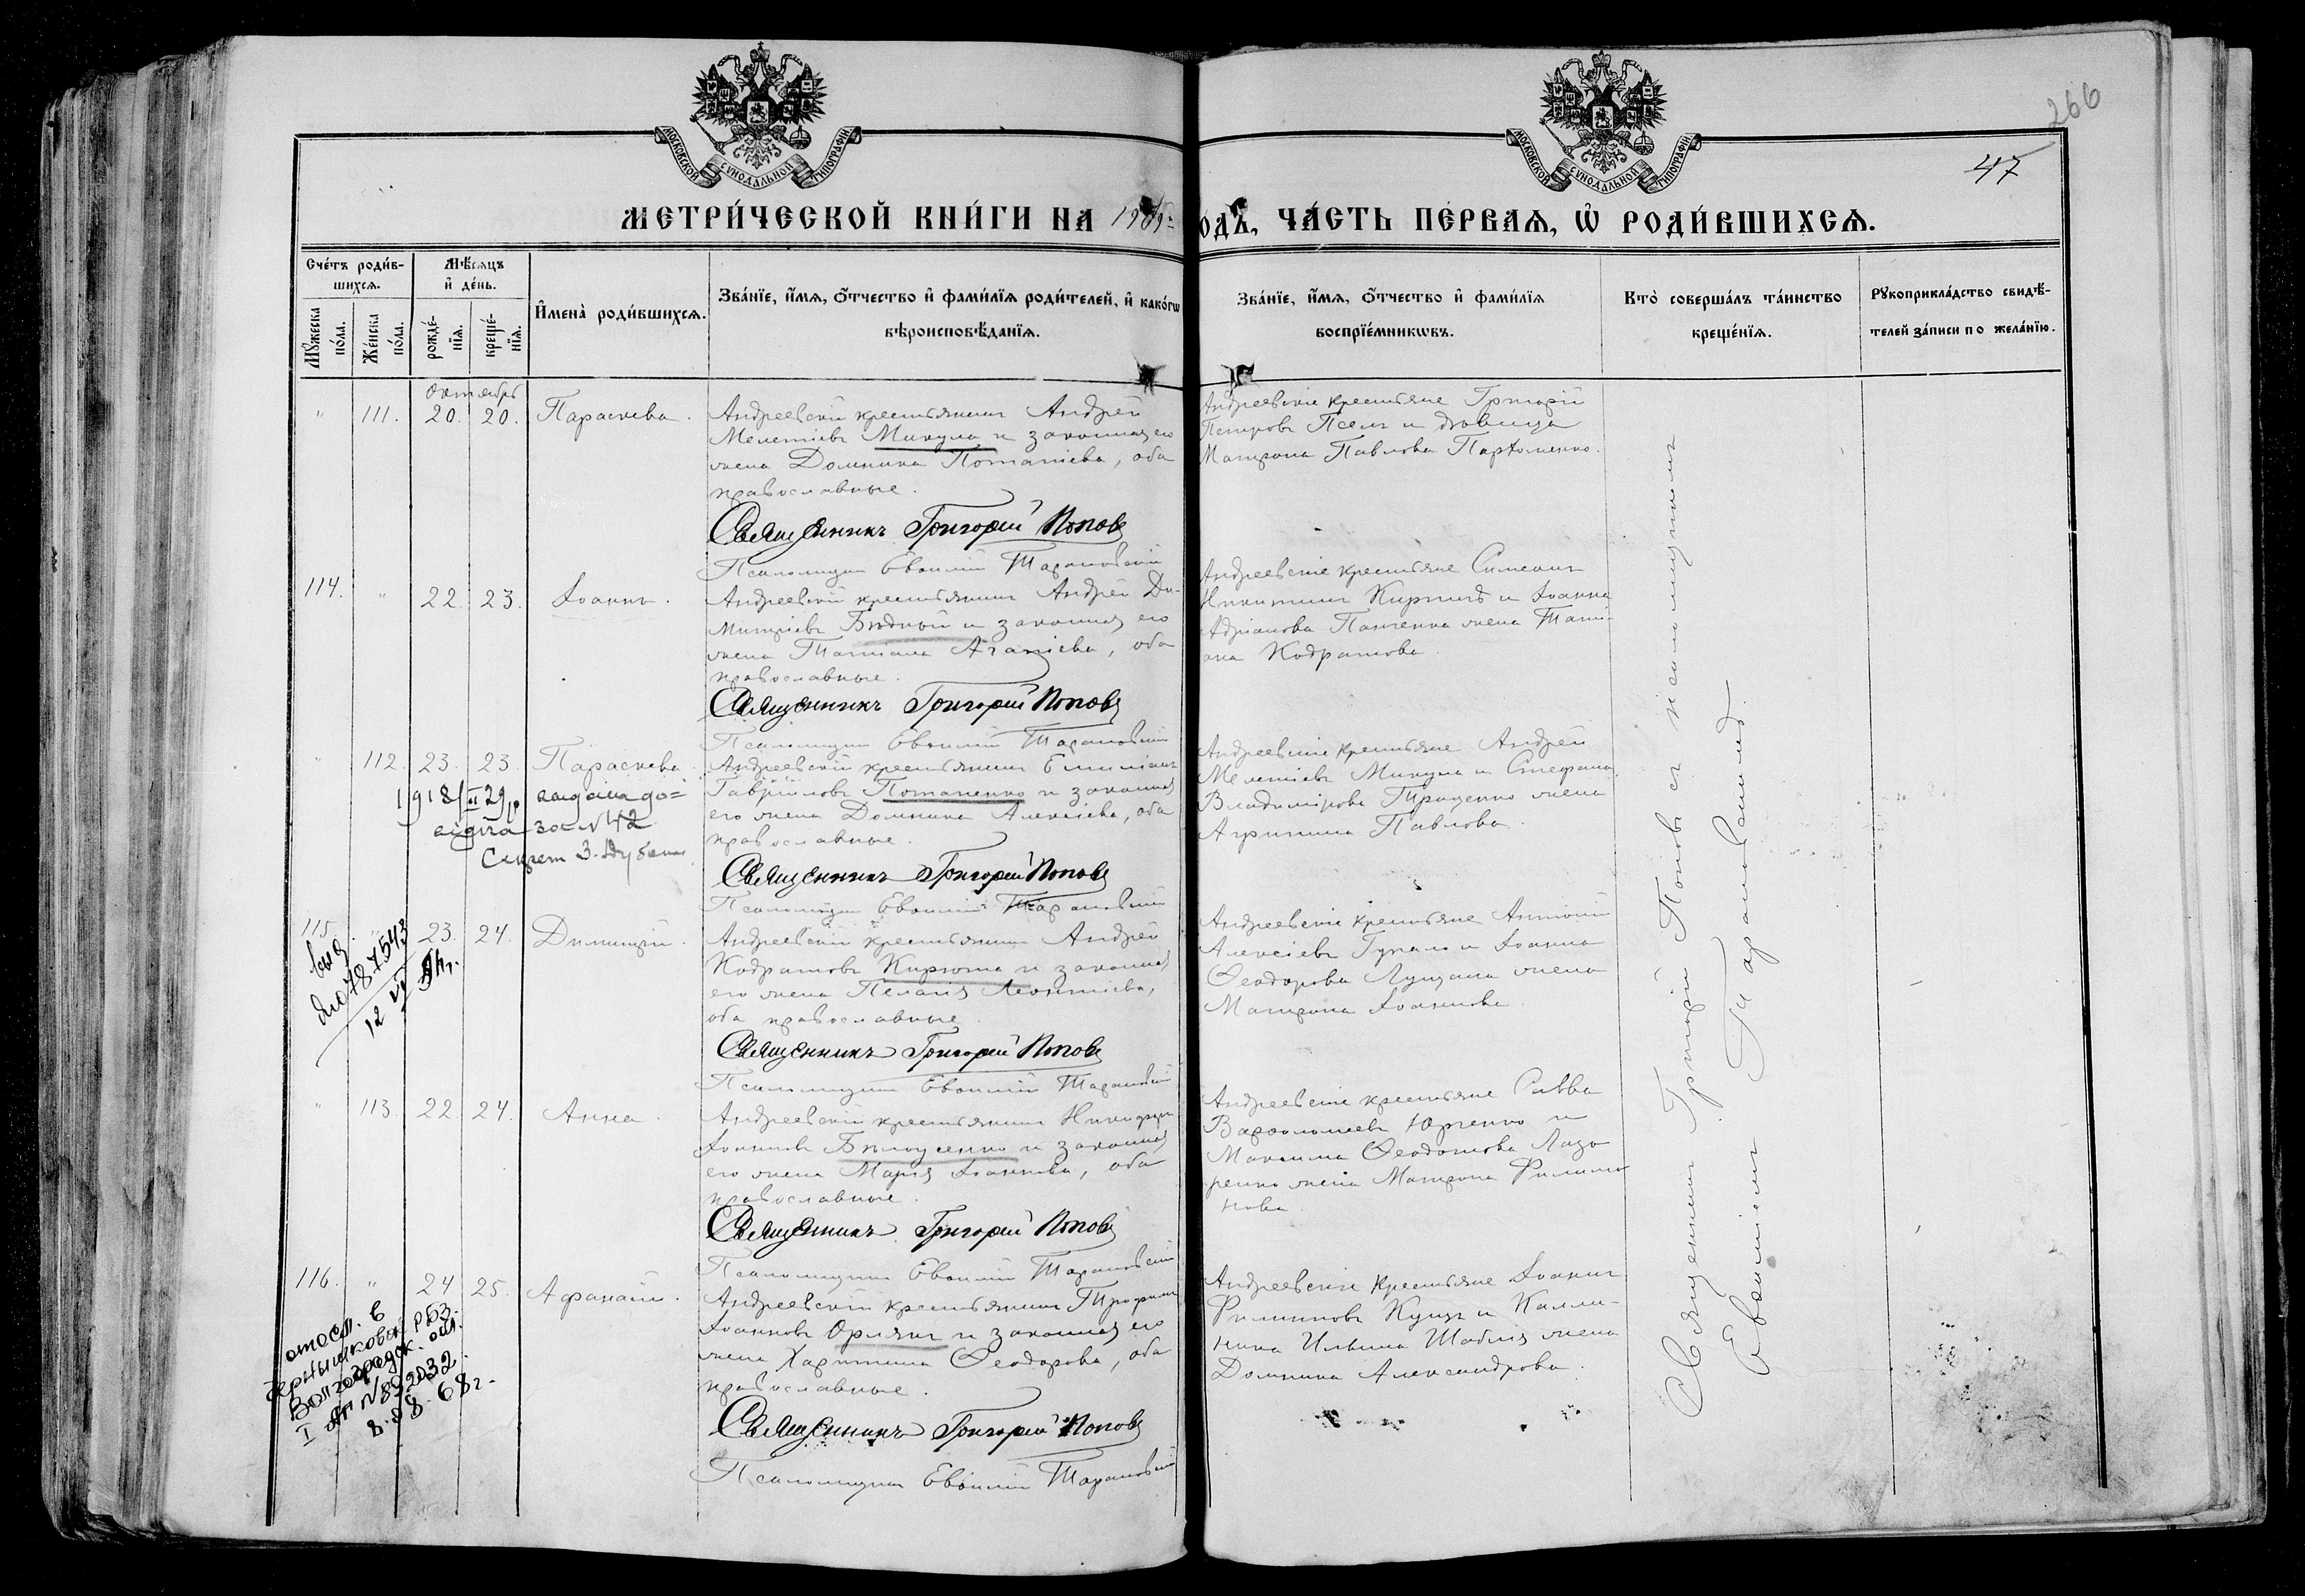 МОСКОВСКОЙ СѴНОДАЛЬНОЙ ТИПОГРАФІИ
МОСКОВСКОЙ СѴНОДАЛЬНОЙ ТИПОГРАФІИ
266
47
МЕТРИ́ЧЕСКОЙ КНИ́ГИ НА 19
ОДЪ, ЧА́СТЬ ПЕ́РВАЯ, Ѡ҆ РОДИ́ВШИХСѦ.
Сче́тъ роди́в-
шихсѧ.
Мѣ́сѧцъ
и҆ де́нь.
Мꙋ́жеска
по́ла.
Же́нска
по́ла.
рожде́-
нїѧ.
креще́-
нїѧ.
И҆мена̀ роди́вшихсѧ.
Зва́нїе, и҆́мѧ, ѻ҆́тчество и҆ фами́лїѧ роди́телей, и҆ како́гѡ
вѣроисповѣ́данїѧ.
Зва́нїе, и҆́мѧ, ѻ҆́тчество и҆ фами́лїѧ
воспрїе́мникѡвъ.
Кто̀ соверша́лъ та́инство
креще́нїѧ.
Рꙋкоприкла́дство свидѣ́-
телей за́писи по жела́нїю.
Октябрь
" 111. 20. 20. Параскева.
Андреевскій крестьянинъ Андрей
Мелетіевъ Микула и законная его
жена Домника Потапіева, оба
православные.
Священникъ Григорій Поповъ
Псаломщикъ Евѳимій Тарановскій
Андреевскіе крестьяне Григорій
Петровъ Псёлъ и дѣвица
Матрона Павлова Парѳоменко.
114. " 22. 23. Іоаннъ.
Андреевскій крестьянинъ Андрей Ди-
митріевъ Бѣдный и законная его
жена Татіана Агапіева, оба
православные.
Священникъ Григорій Поповъ
Псаломщикъ Евѳимій Тарановскій
Андреевскіе крестьяне Симеонъ
Никитинъ и Іоанна
Адріанова Панченка жена Таті-
ана Кодратова
" 112. 23. 23. Параскева.
1918 II 29
за № 42
Андреевскій крестьянинъ Емиліанъ
Гавріиловъ Потапенко и законная
его жена Домника Алексіева, оба
православные.
Священникъ Григорій Поповъ
Псаломщикъ Евѳимій Тарановскій
Андреевскіе крестьяне Андрей
Мелетіевъ Микула и Стефана
Владимірова Троценко жена
Агрипина Павлова.
115. " 23. 24. Димитрій.
выд.
787543
12 VI
Андреевскій крестьянинъ Андрей
Кодратовъ Кирюша и законная
его жена Пелагія Леонтіева,
оба православные
Священникъ Григорій Поповъ
Псаломщикъ Евѳимій Тарановскій
Андреевскіе крестьяне Антоній
Алексіевъ и Іоанна
Ѳеодорова Лущана жена
Матрона Іоаннова
" 113. 22. 24. Анна
Андреевскій крестьянинъ Никифоръ
Іоанновъ Бѣлоусенко и законная
его жена Марія Іоаннова, оба
православные.
Священникъ Григорій Поповъ
Псаломщикъ Евѳимій Тарановскій
Андреевскіе крестьяне Савва
Варѳоломеевъ Юрченко и
Максима Ѳеодотова Лазо-
ренко жена Матрона Филимо-
нова
116. " 24 25. Аѳанасій.
в
Волгоградск. обл.
I № 892032
8.08.68г.
Андреевскій крестьянинъ Трофимъ
Іоанновъ Орлянъ и законная его
жена Харитина Ѳеодорова, оба
православные.
Священникъ Григорій Поповъ
Псаломщикъ Евѳимій Тарановскій
Андреевскіе крестьяне Іоаннъ
Филипповъ Куцъ и Калли-
ника Ильина жена
Домника Александрова.
Священникъ Григорій Поповъ съ псаломщикомъ
Евѳиміемъ Тарановскимъ.